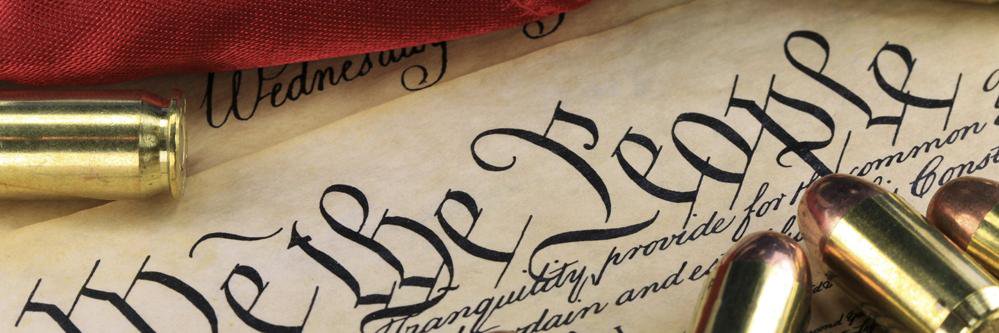 Wednesday
We the People
Tranquility, provide for the common
Const
ordain and es